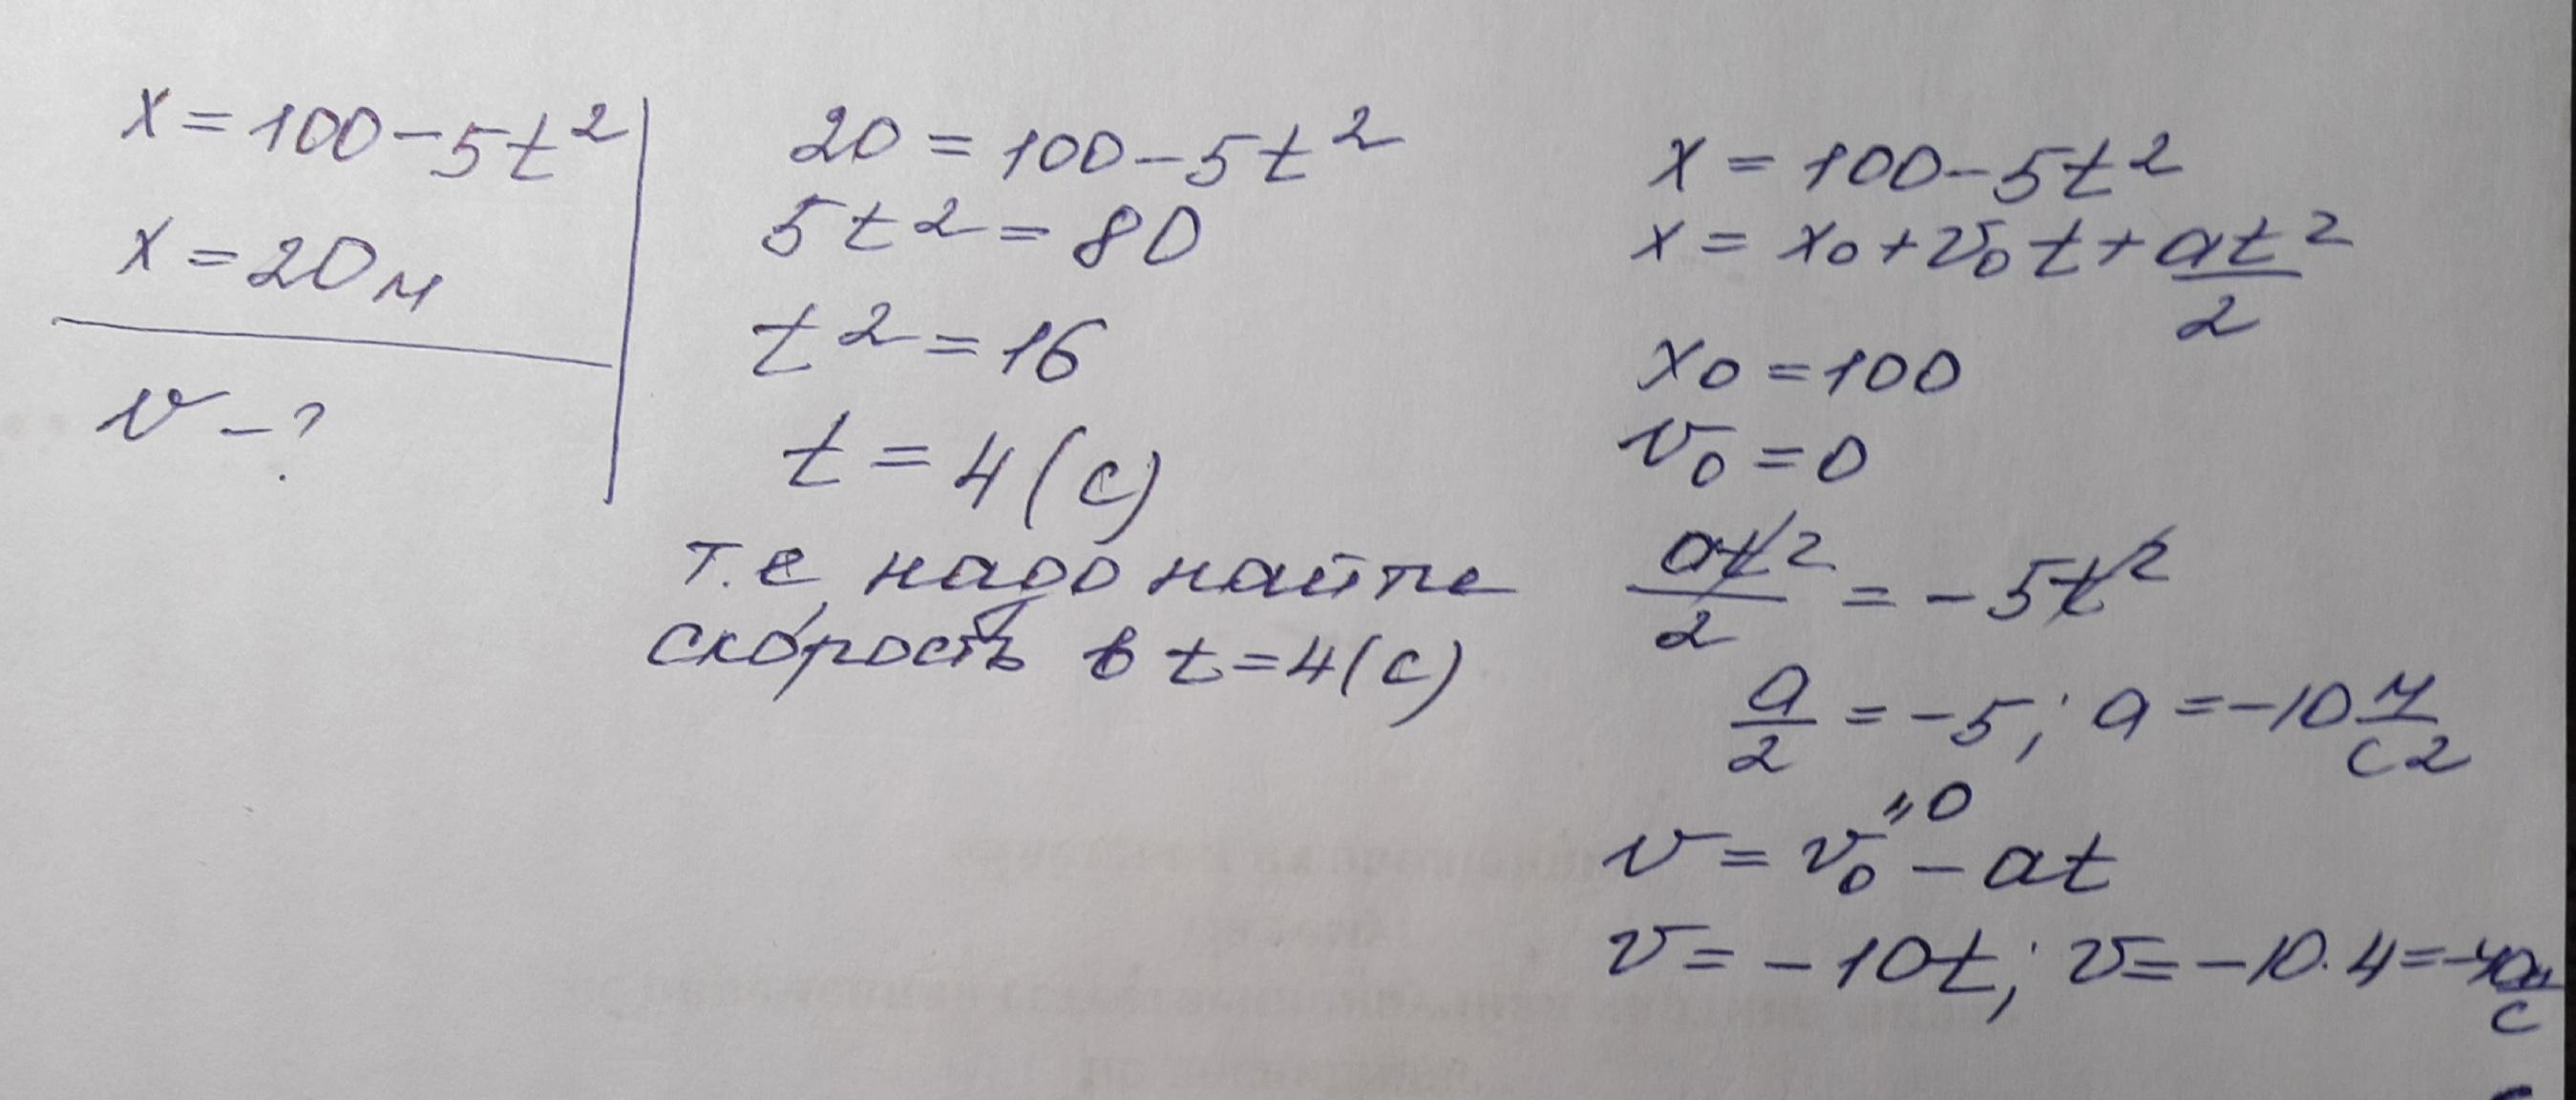 x = 100 - 5t²
x = 20 м
v - ?
20 = 100 - 5t²
5t² = 80
t² = 16
t = 4 (с)
т.е, надо найти
скорость в t = 4 (с)
x = 100 - 5t²
x = x₀ + v₀t + at²/2
x₀ = 100
v₀ = 0
at²/2 = -5t²
a/2 = -5; a = -10 м/с2
"0
v = v₀ - at
v = -10t; v = -10·4 = -40 м/с